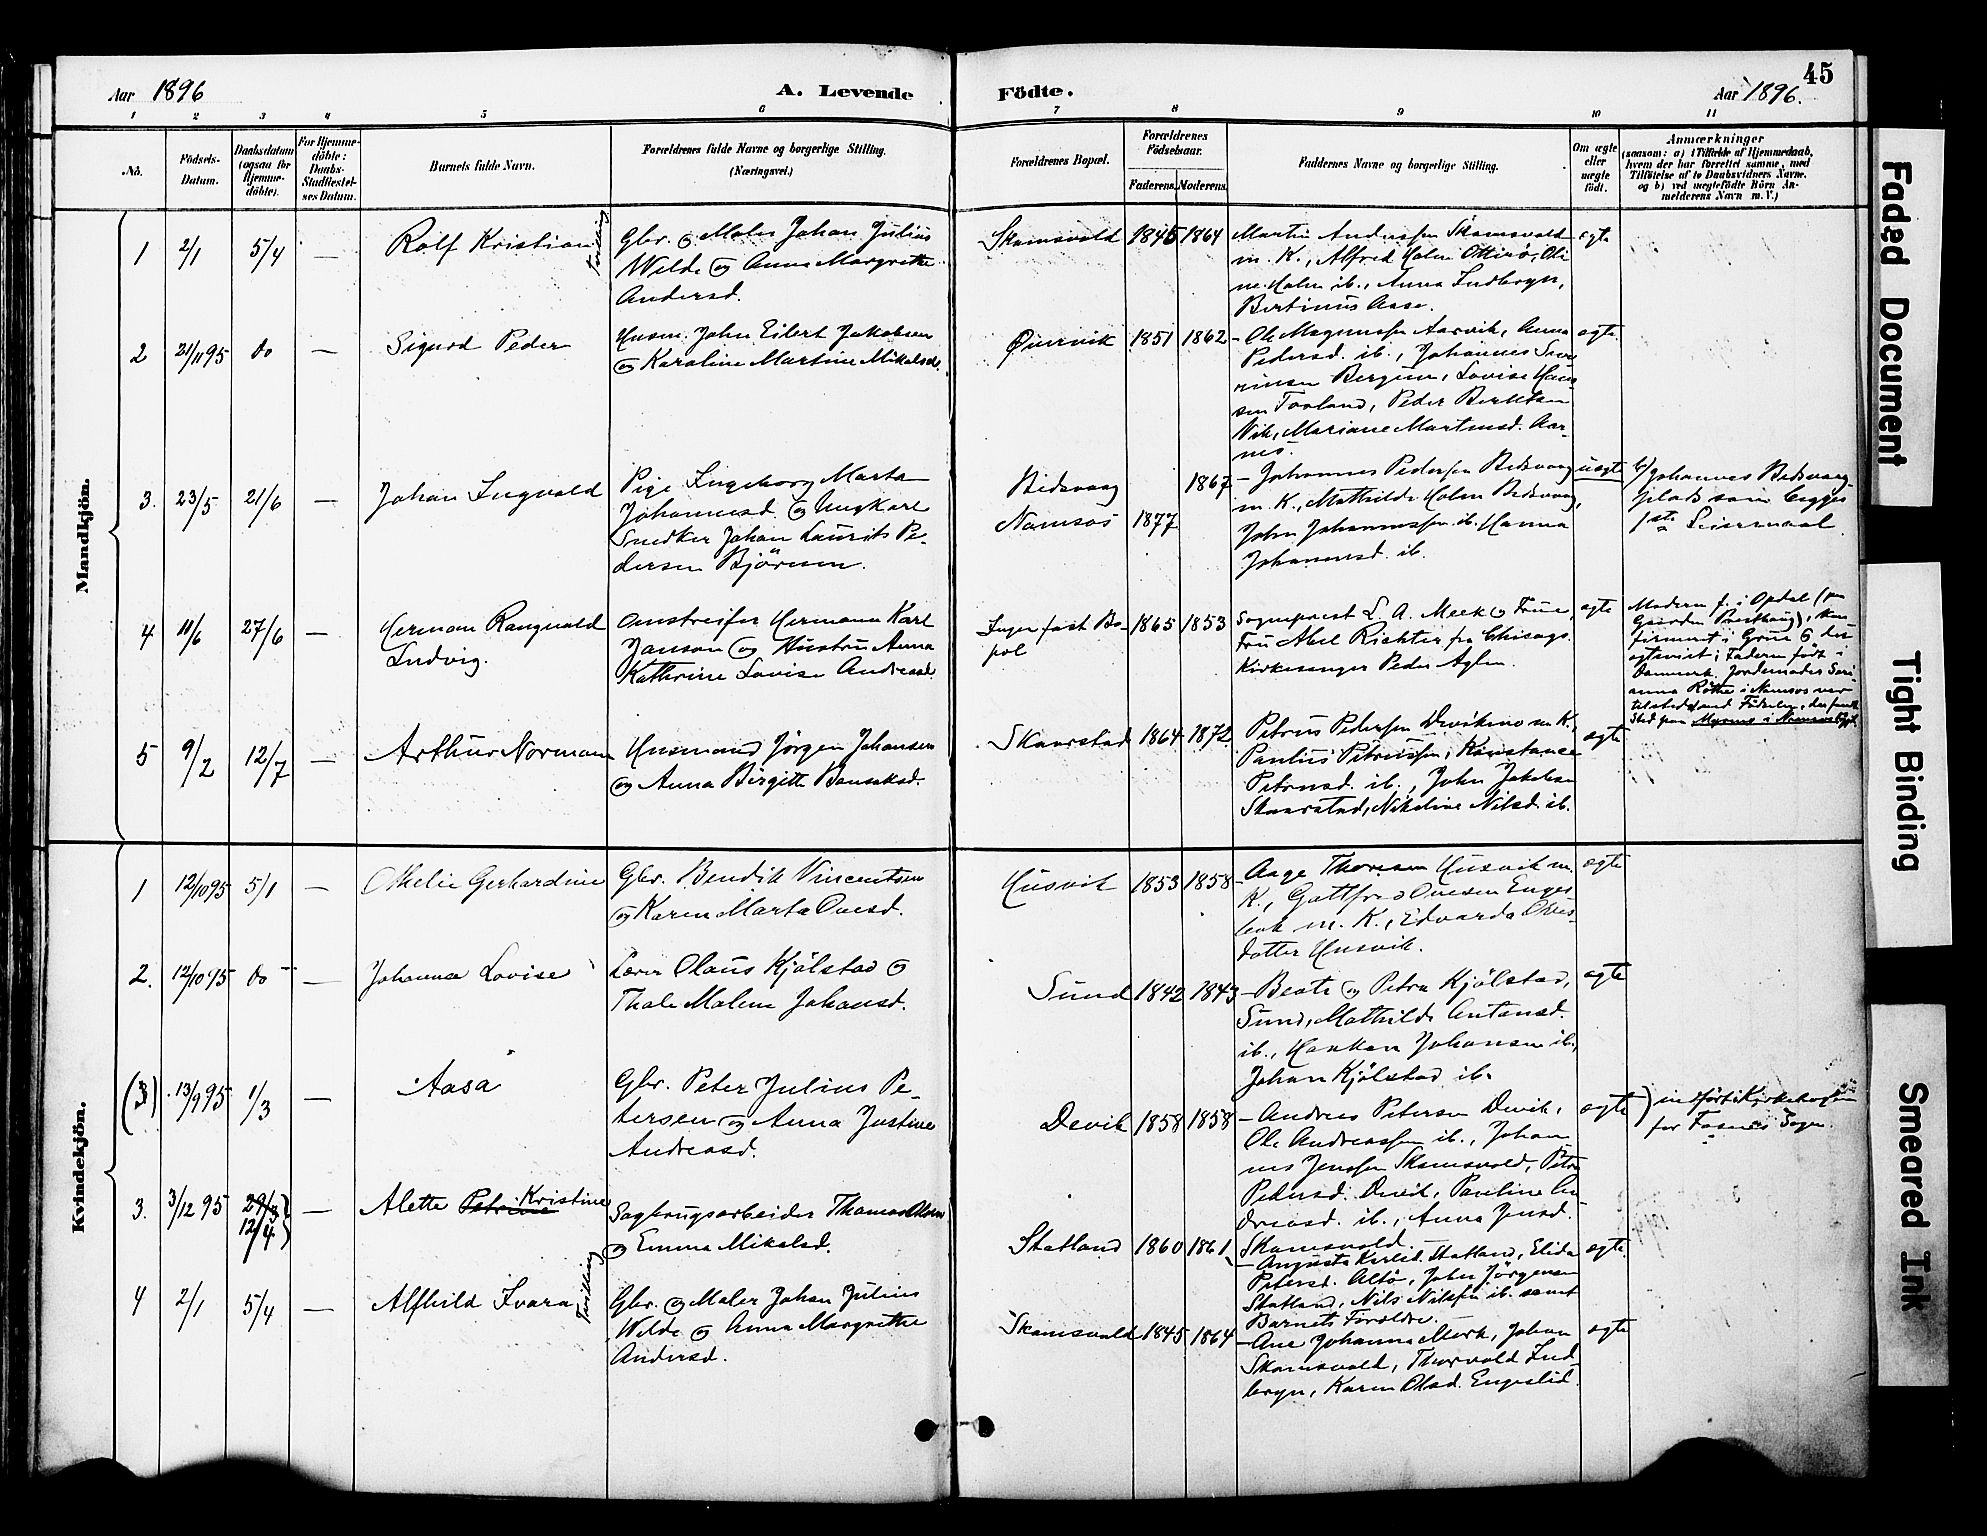 Aar 1896
A. Levende
Födte.
Aar 1896.
45
1 2 3 4 5 6 7 8 9 10 11
No.
Födsels-
Datum.
Daabsdatum
(ogsaa for
Hjemme-
döbte).
For Hjemme-
döbte:
Daabs-
Stadfæstel-
ses Datum.
Barnets fulde Navn.
Forældrenes fulde Navne og borgerlige Stilling.
(Næringsvei.)
Forældrenes Bopæl.
Forældrenes
Födselsaar.
Faderens. Moderens.
Faddernes Navne og borgerlige Stilling.
Om ægte
eller
uægte
født.
Anmærkninger
(saasom: a) i Tilfælde af Hjemmedaab,
hvem der har forrettet samme, med
Tilföielse af to Daabsvidners Navne.
og b) ved uægtefødte Börn An-
melderens Navn m. V.)
Mandkjön.
1 2/1 5/4 — Rolf Kristian Tvilling
Gbr. og Maler Johan Julius
Wilde og Anna Margrethe
Andersd.
Skamsvold 1845 1864
Martin Anderssen Skamsvold
m. K., Alfred Holm Otterø, Oli
ne Holm ib., Anna Indbryn,
Bertinus Aase.
ægte
2 21/11 95 do — Sigurd Peder
Husm. John Eilert Jakobsen
og Karoline Martine Mikalsd.
Qvervik 1851 1862
— Ole Magnussen Aarvik, Anna
Pedersd. ib., Johannes Seve
rinsen Bergum, Lovise Han
sen Tooland, Peder Berntsen
Vik, Mariane Martinsd. Aar-
nes.
ægte
3. 23/5 21/6 — Johan Ingvald
Pige Ingeborg Marta
Johannesd. og Ungkarl
Snedker Johan Laurits Pe-
dersen Björuen.
Bidsvaag 1867
Namsos 1877
— Johannes Pedersen Bedsvaag
m. K., Mathilde Holm Bedsvaag,
John Johannessen ib. Hanna
Johannesd. ib.
uægte
b/ Johannes Bedsvaag
plads som begges
1ste Leiermaal
4 11/6 27/6 — Herman Rangvald
Ludvig.
Omstreifer Hermann Karl
Janson og Hustru Anna
Kathrine Lovise Andreasd.
Ingen fast Bo-
pæl 1865 1853
Sogneprest L. A. Meek og Frue,
Fru Abel Richter fra Chicago.
Kirkesanger Peder Aglen.
ægte
Moderen f. i Opdal (paa
Gaarden Presthaug), kon
firmeret i Grue og der
ægteviet; Faderen født i
Danmark. Jordemoder Seri
anna Röthe i Namsos var
tilstede ved Födselen, der fandt
Sted paa
5 9/2 12/7 — Arthur Norman
Husmand Jørgen Johansen
og Anna Birgitte Bensaksd.
Skaarstad 1864 1872
Petrus Pedersen Devikmo m. K.,
Paulus Petrussen, Konstance
Petrusd. ib., John Jakobsen
Skaarstad, Nikoline Nilsd. ib.
ægte
Kvindekjön.
1 12/10 95 5/1 — Othelie Gerhardine
Gbr. Bendik Vincentsen
og Karen Marta Ovesd.
Husvik 1853 1858
— Aage Thoresen Husvik m.
K., Gottfred Ovesen Enges
bak m. K., Edvarda Oves-
datter Husvik.
ægte
2. 12/10 95 do — Johanna Lovise
Lærer Olaus Kjölstad og
Thale Malene Johansd.
Sund 1842 1843
— Beate og Petra Kjölstad,
Sund, Mathilde Antonsd.
ib., Haakon Johansen ib.,
Johan Kjölstad ib.
ægte
(3) 13/9 95 1/3 — Aasa
Gbr. Peter Julius Pe-
tersen og Anna Justine
Andreasd.
Devik 1858 1858
— Andreas Petersen Devik,
Ole Andreassen ib., Johan
nes Jenssen Skamsvold, Petra
Pedersd. Devik, Pauline An
dreasd. ib., Anna Jensd.
Skamsvold.
ægte
) indført i Kirkebogen
for Fosnes Sogn.
3. 3/12 95 29/3 12/4 — Alette Petrine Kristine
Sagbrugsarbeider Thomas Olsen
og Emma Mikalsd.
Statland 1860 1861
— Augusta Karlsd. Statland, Elida
Petersd. Altö, John Jörgensen
Statland, Nils Nilssen ib. samt
Barnets Forældre.
ægte.
4 2/1 5/4 — Alfhild Ivara Tvilling
Gbr. og Maler Johan Julius
Wilde og Anna Margrethe
Andersd.
Skamsvold 1845 1864
— Ane Johanna Mork, Johan
Skamsvold, Thorvald Ind
bryn, Karen Olsd. Engeslid.
ægte
Faded Document
Tight Binding
Smeared Ink